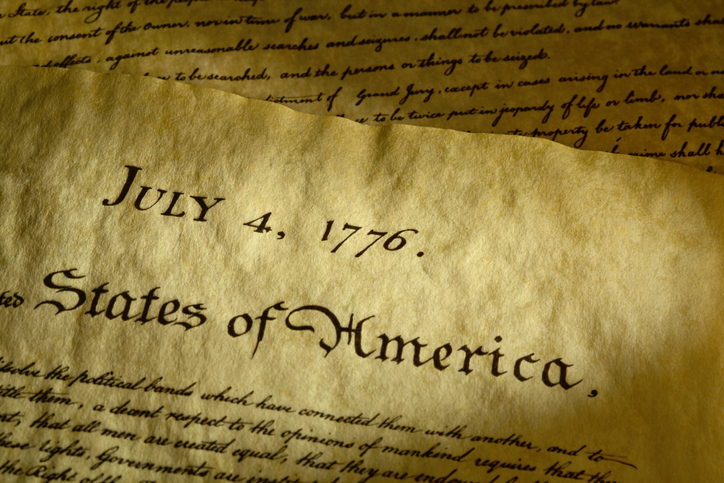 State, the right of the people
the consent of the Owner, nor in time of war, but in a manner to be prescribed by law.
effects, against unreasonable searches and seizures, shall not be violated, and no warrants
to be searched, and the persons or things to be seized.
Grand Jury, except in cases arising in the land or
to be twice put in jeopardy of life or limb, nor
property be taken for
shall
JULY 4, 1776.
States of America,
the political bands which have connected them with another, and to
them, a decent respect to the opinions of mankind requires that
that all men are created equal, that they are
rights, Governments are
the Right of the